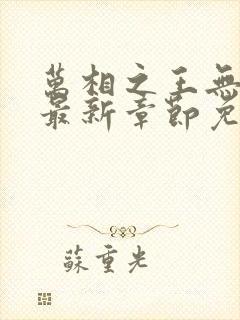 萬相之王無
最新章節免
蘇重光